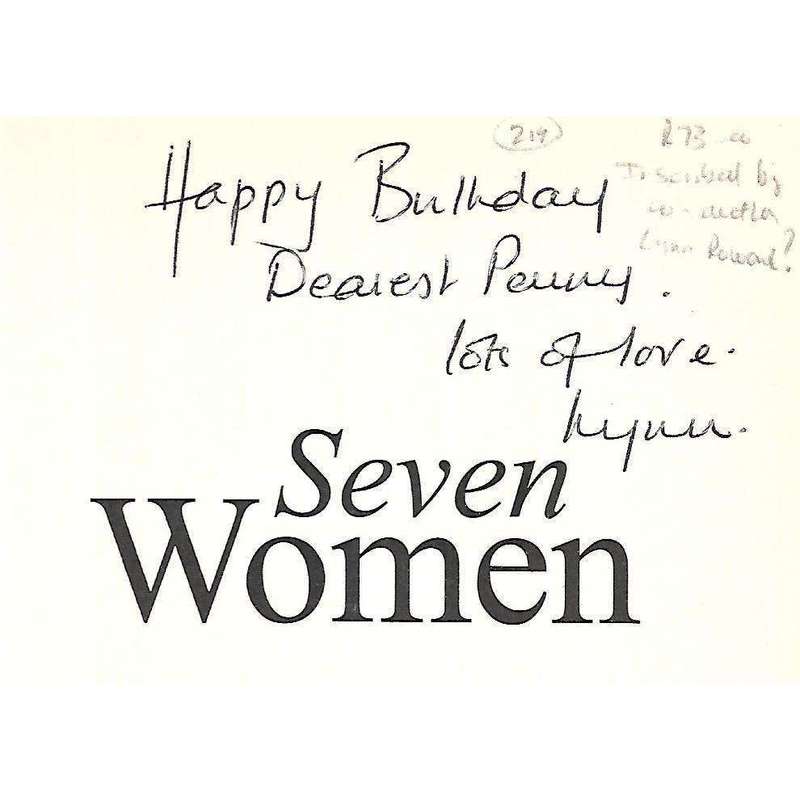 219
R73
Inscribed by
co-author
Lynn
?
Happy Birthday
Dearest Penny.
lots of love.
Lynn.
Seven
Women